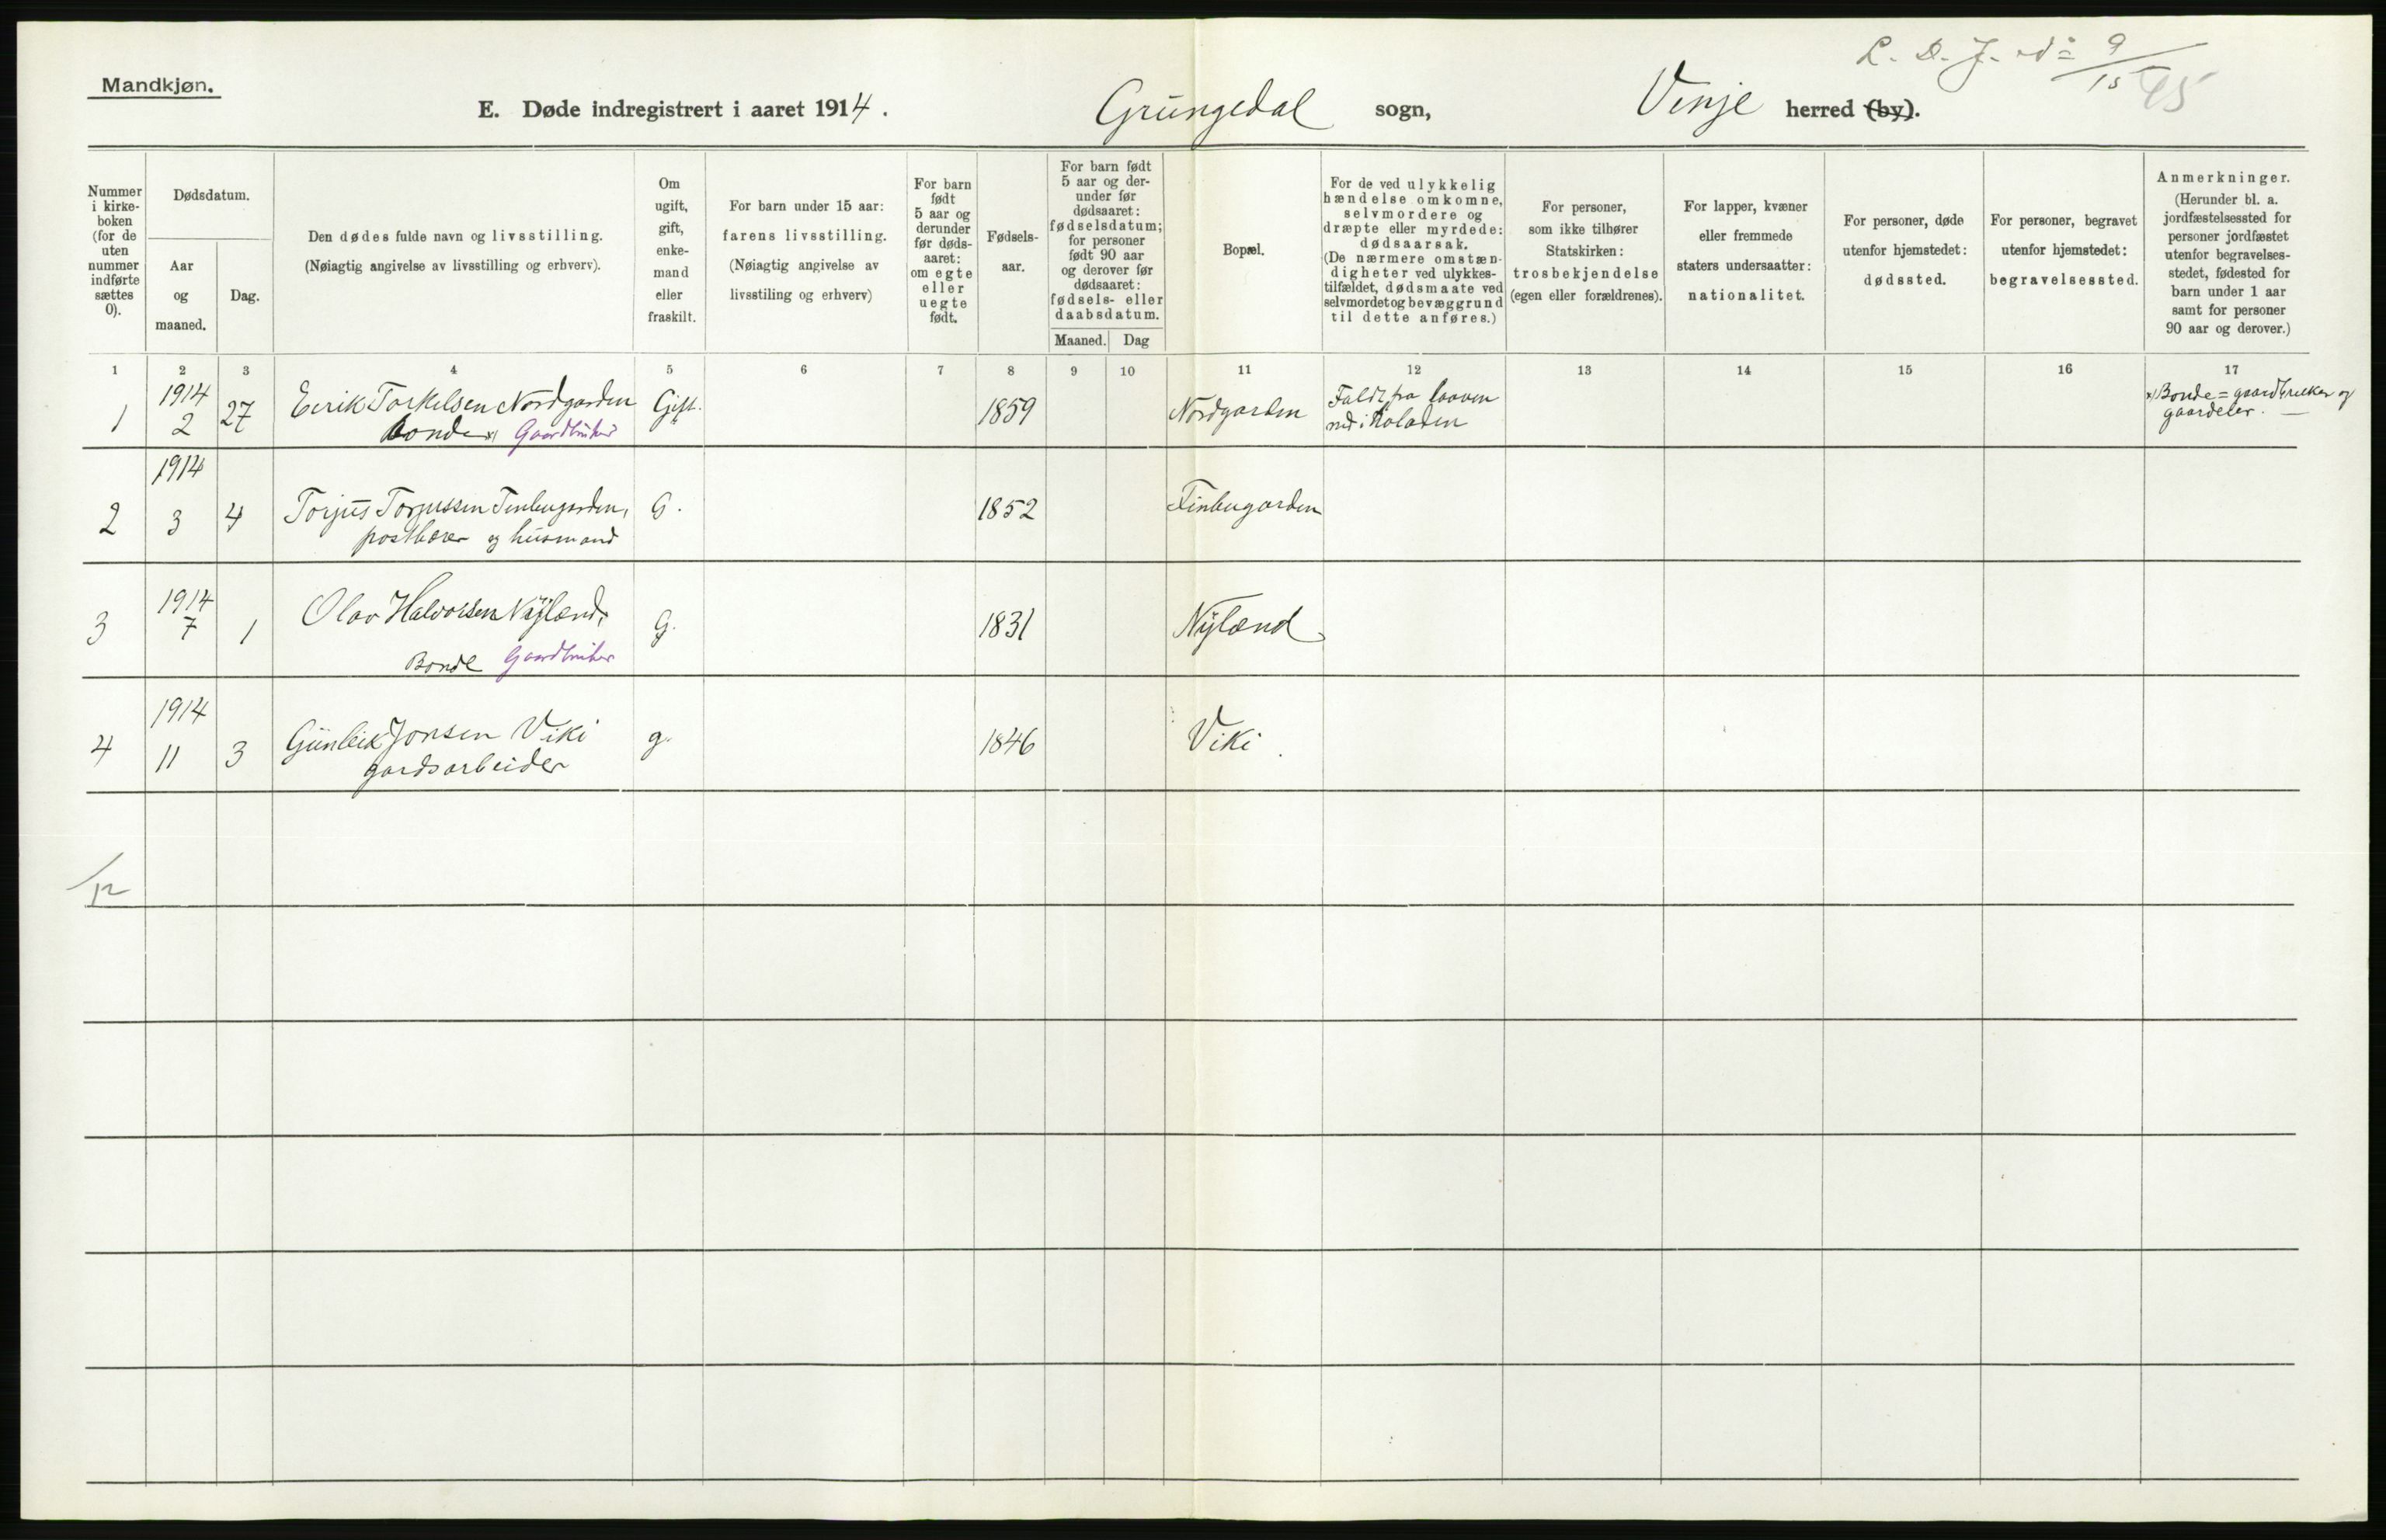 Mandkjøn.
E. Døde indregistrert i aaret 1914.
Grungedal sogn,
Vinje herred (by).
9/15
Nummer i kirke-boken (for de uten nummer indførte sættes 0).
Dødsdatum.
Aar og maaned.
Dag.
Den dødes fulde navn og livsstilling.
(Nøiagtig angivelse av livsstilling og erhverv).
Om ugift, gift, enke-mand eller fraskilt.
For barn under 15 aar:
farens livsstilling.
(Nøiagtig angivelse av
livsstiling og erhverv)
For barn født 5 aar og derunder før døds-aaret: om egte eller uegte født.
Fødsels-aar.
For barn født 5 aar og der-under før dødsaaret: fødselsdatum; for personer født 90 aar og derover før dødsaaret: fødsels- eller daabsdatum.
Maaned. Dag
Bopæl.
For de ved ulykkelig hændelse omkomne, selvmordere og dræpte eller myrdede: dødsaarsak. (De nærmere omstæn-digheter ved ulykkes-tilfældet, dødsmaate ved selvmordet og bevæggrund til dette anføres.)
For personer, som ikke tilhører Statskirken: trosbekjendelse (egen eller forældrenes).
For lapper, kvæner eller fremmede staters undersaatter: nationalitet.
For personer, døde utenfor hjemstedet: dødssted.
For personer, begravet utenfor hjemstedet: begravelsessted.
Anmerkninger.
(Herunder bl. a. jordfæstelsessted for personer jordfæstet utenfor begravelses-stedet, fødested for barn under 1 aar samt for personer 90 aar og derover.)
1 2 3 4 5 6 7 8 9 10 11 12 13 14 15 16 17
1 1914 2 27 Eirik Torkelsen Nordgarden Gift. 1859 Nordgarden Faldt fra laaven ned i x) Bonde = gaardbruker og gaardeier.
Bonde x) Gaardbruker
2 1914 3 4 Torjus Torjussen G. 1852
postbærer og husmand
3 1914 7 1 Olav Halvorsen Nyland, G. 1831 Nyland
Bonde Gaardbruker
4 1914 11 3 Gunleik Jonsen Viki g. 1846 Viki.
gardsarbeider